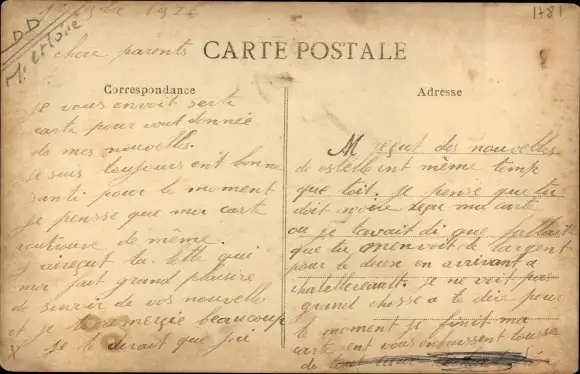 1781
DD
M. et Loire
1926
chere parents
CARTE POSTALE
Correspondance
je vous envoit sette
carte pour vout donnée
de mes nouvelles.
je suis toujours ent bonne
santi pour le moment
je pensse que ma carte
de même.
j'aireçut ta lette qui
ma fait grand plaisire
de savoir de vos nouvelle
et je te remerçie beaucoup
x je te dirait que j'ai
Adresse
reçut des nouvelles
de estelle int même temp
que toit. je pense que tu
doit avoire reçu ma carte
ou je tavait di que fallait
que tu menvoit de largent
pour a deux en arrivant a
chatellereault. je ne voit pas
grand chosse a te dire pour
le moment je finit ma
carte ent vous enbrassent tousse
de tout